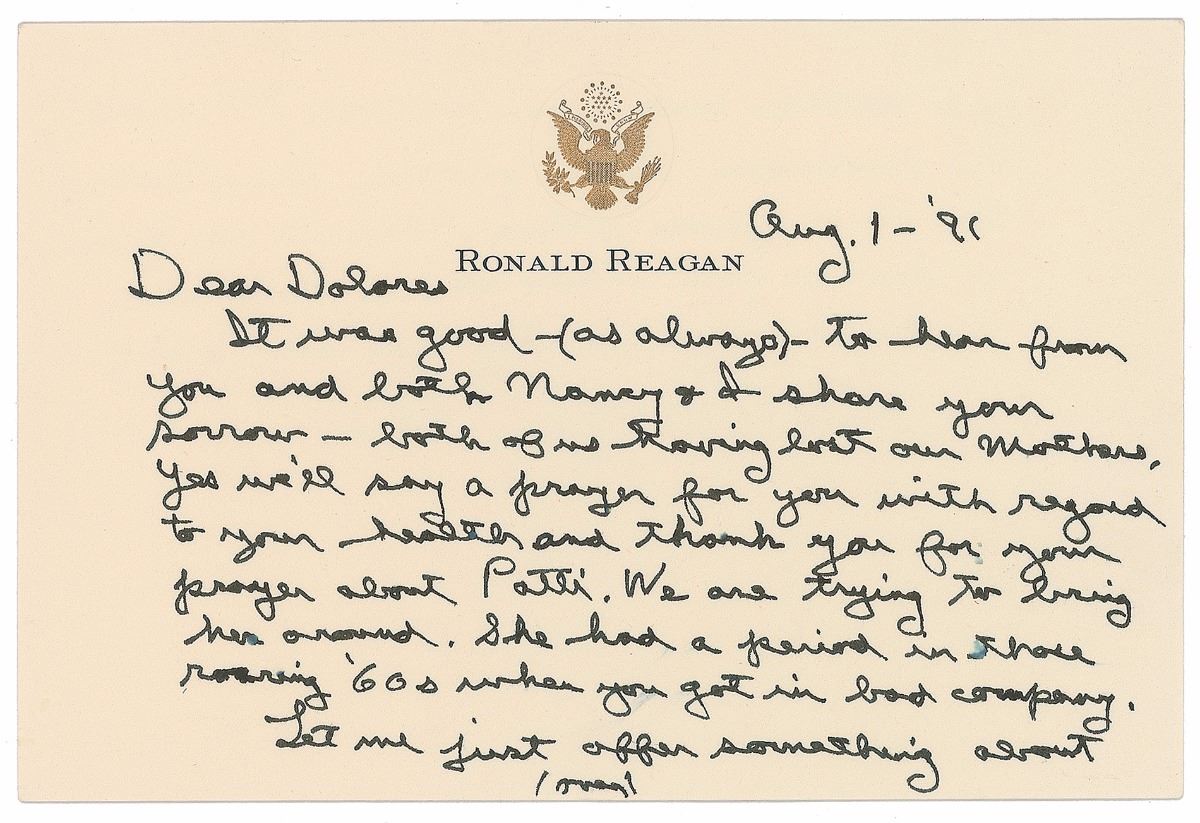 Aug. 1 - '91
RONALD REAGAN
Dear Dolores
It was good - (as always) - to hear from
you and both Nancy & I share your
sorrow - both of us having lost our Mothers.
Yes we'll say a prayer for you with regard
to your health and thank you for your
prayer about Patti. We are trying to bring
her around. She had a period in those
roaring '60s when you got in bad company.
Let me just offer something about
(over)